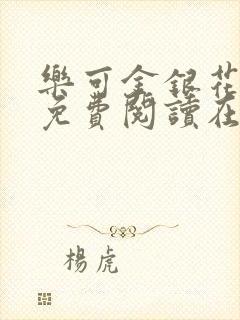 樂可金銀花
免費閱讀在
楊虎